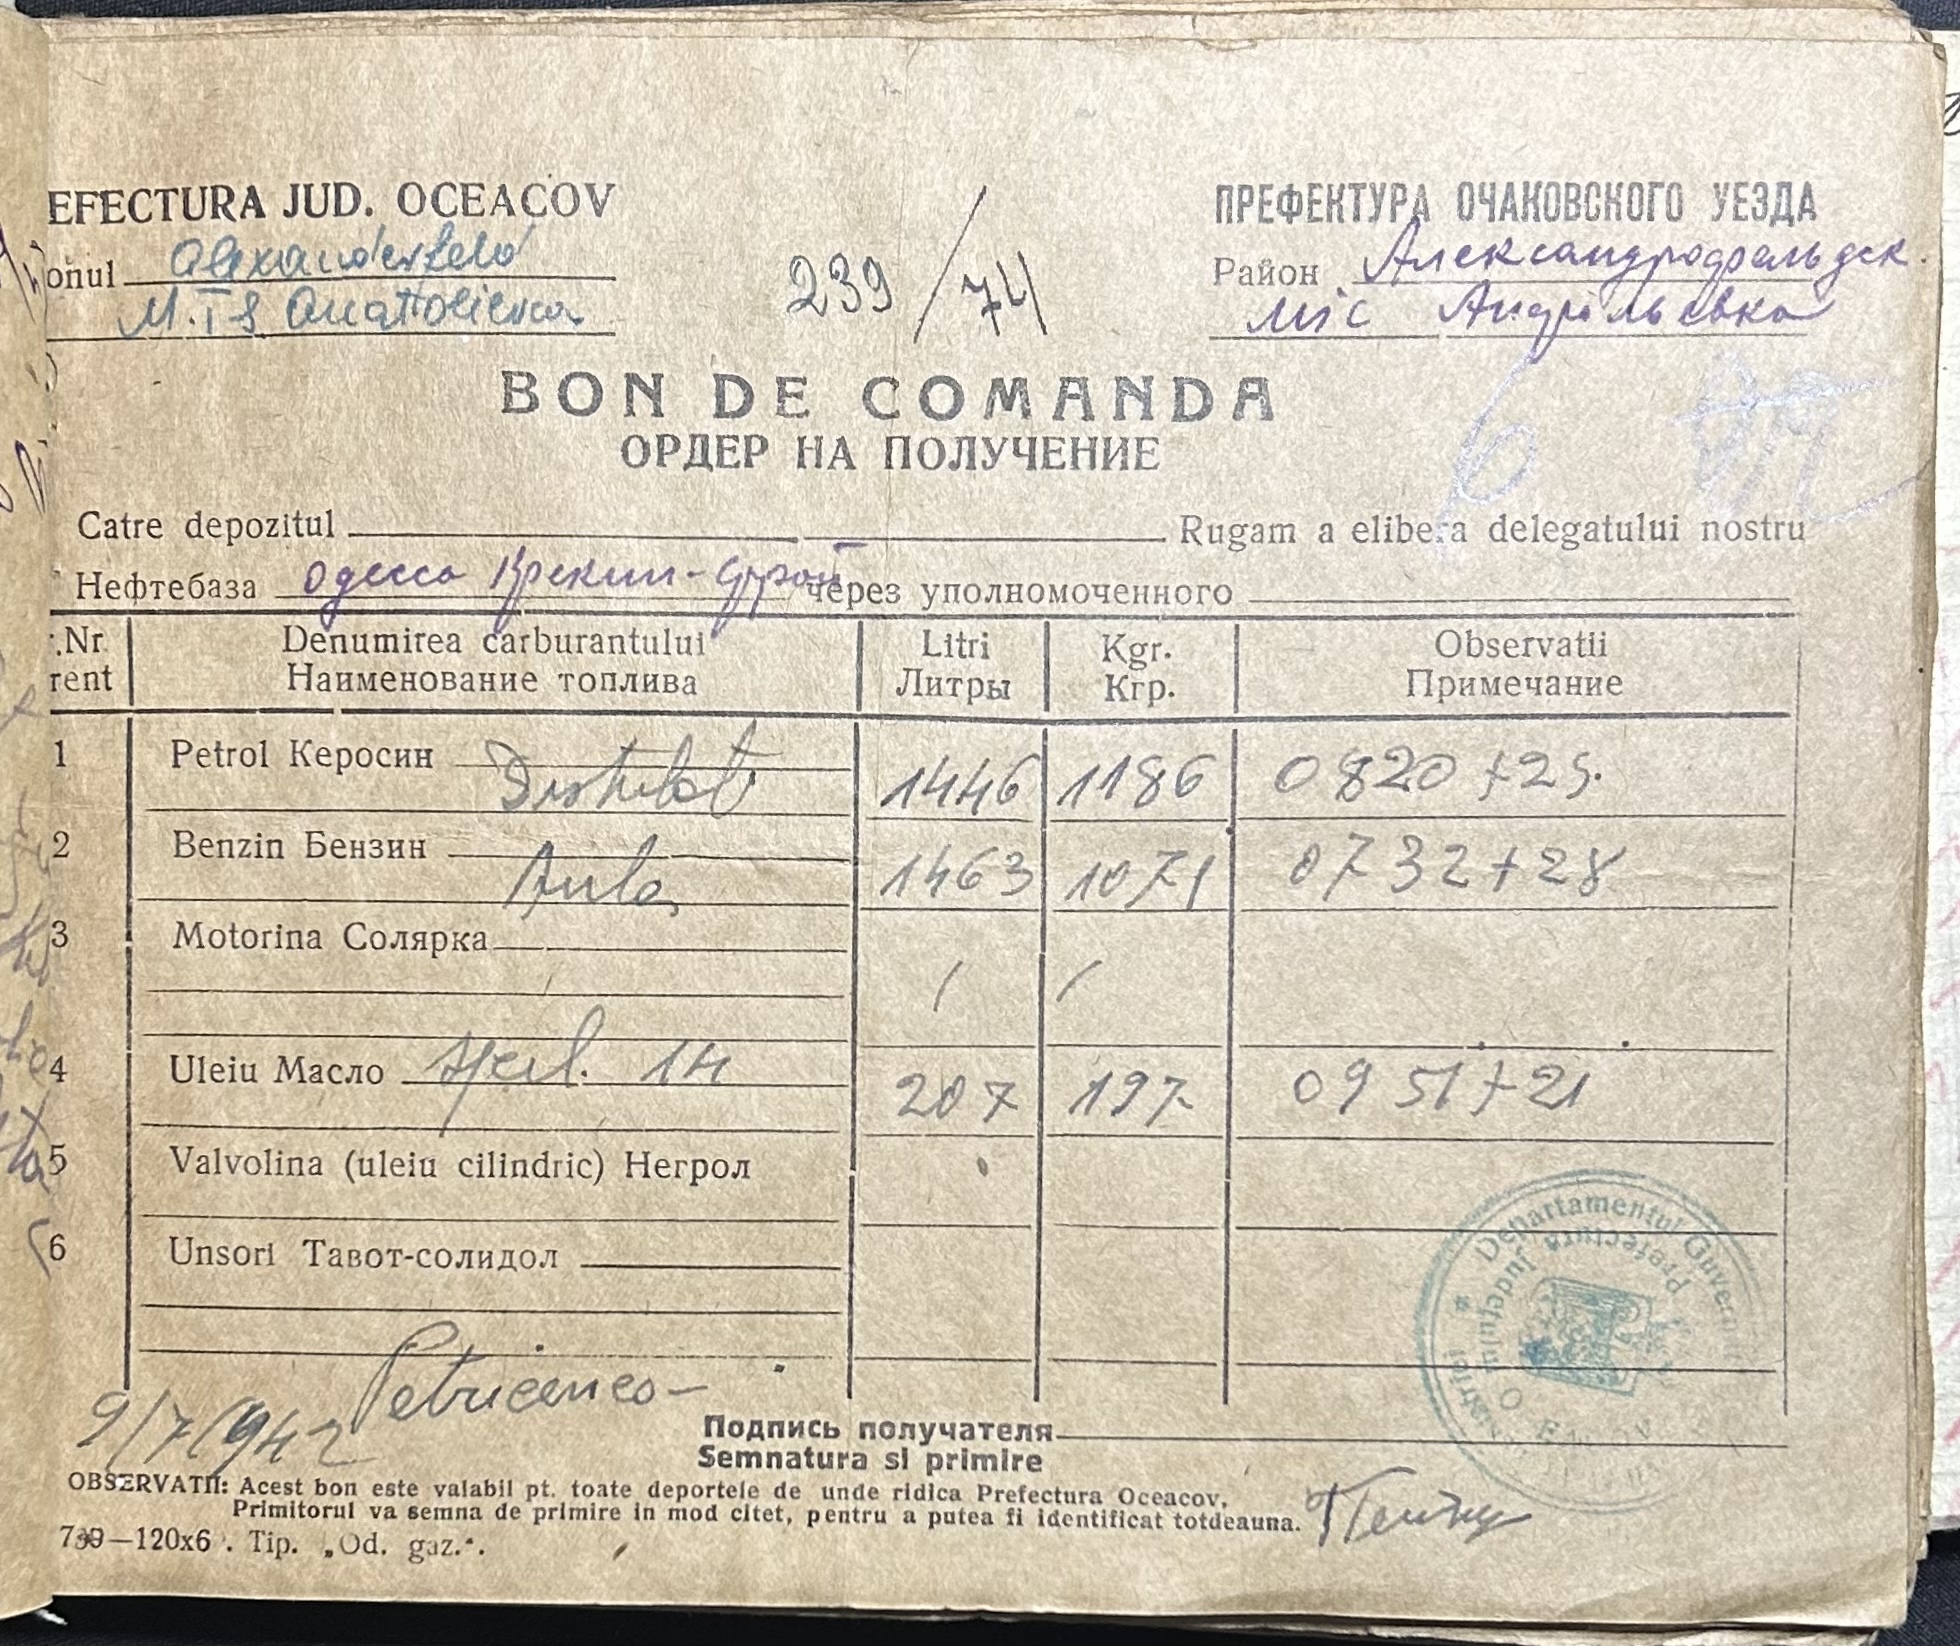 EFECTURA JUD. OCEACOV
onul Alexanderfeld
M.T.S
239/74
ПРЕФЕКТУРА ОЧАКОВСКОГО УЕЗДА
Район Александрофельдск.
мтс
BON DE COMANDA
ОРДЕР НА ПОЛУЧЕНИЕ
6
Catre depozitul Rugam a elibera delegatului nostru
Нефтебаза Одесса Крекин-Строй через уполномоченного
.Nr. Denumirea carburantului Litri Kgr. Observatii
rent Наименование топлива Литры Кгр. Примечание
1 Petrol Керосин Distilat 1446 1186 0820+25.
2 Benzin Бензин 1463 1071 0732+28
3 Motorina Солярка / /
4 Uleiu Масло 14 207 197 0951+21
5 Valvolina (uleiu cilindric) Негрол
6 Unsori Тавот-солидол
Departamentul Guvern
Prefectura Județului
O
Petricenco
9/7/942
Подпись получателя
Semnatura si primire
OBSERVATII: Acest bon este valabil pt. toate deportele de unde ridica Prefectura Oceacov.
Primitorul va semna de primire in mod citet, pentru a putea fi identificat totdeauna.
739—120x6 . Tip. „Od. gaz.“.